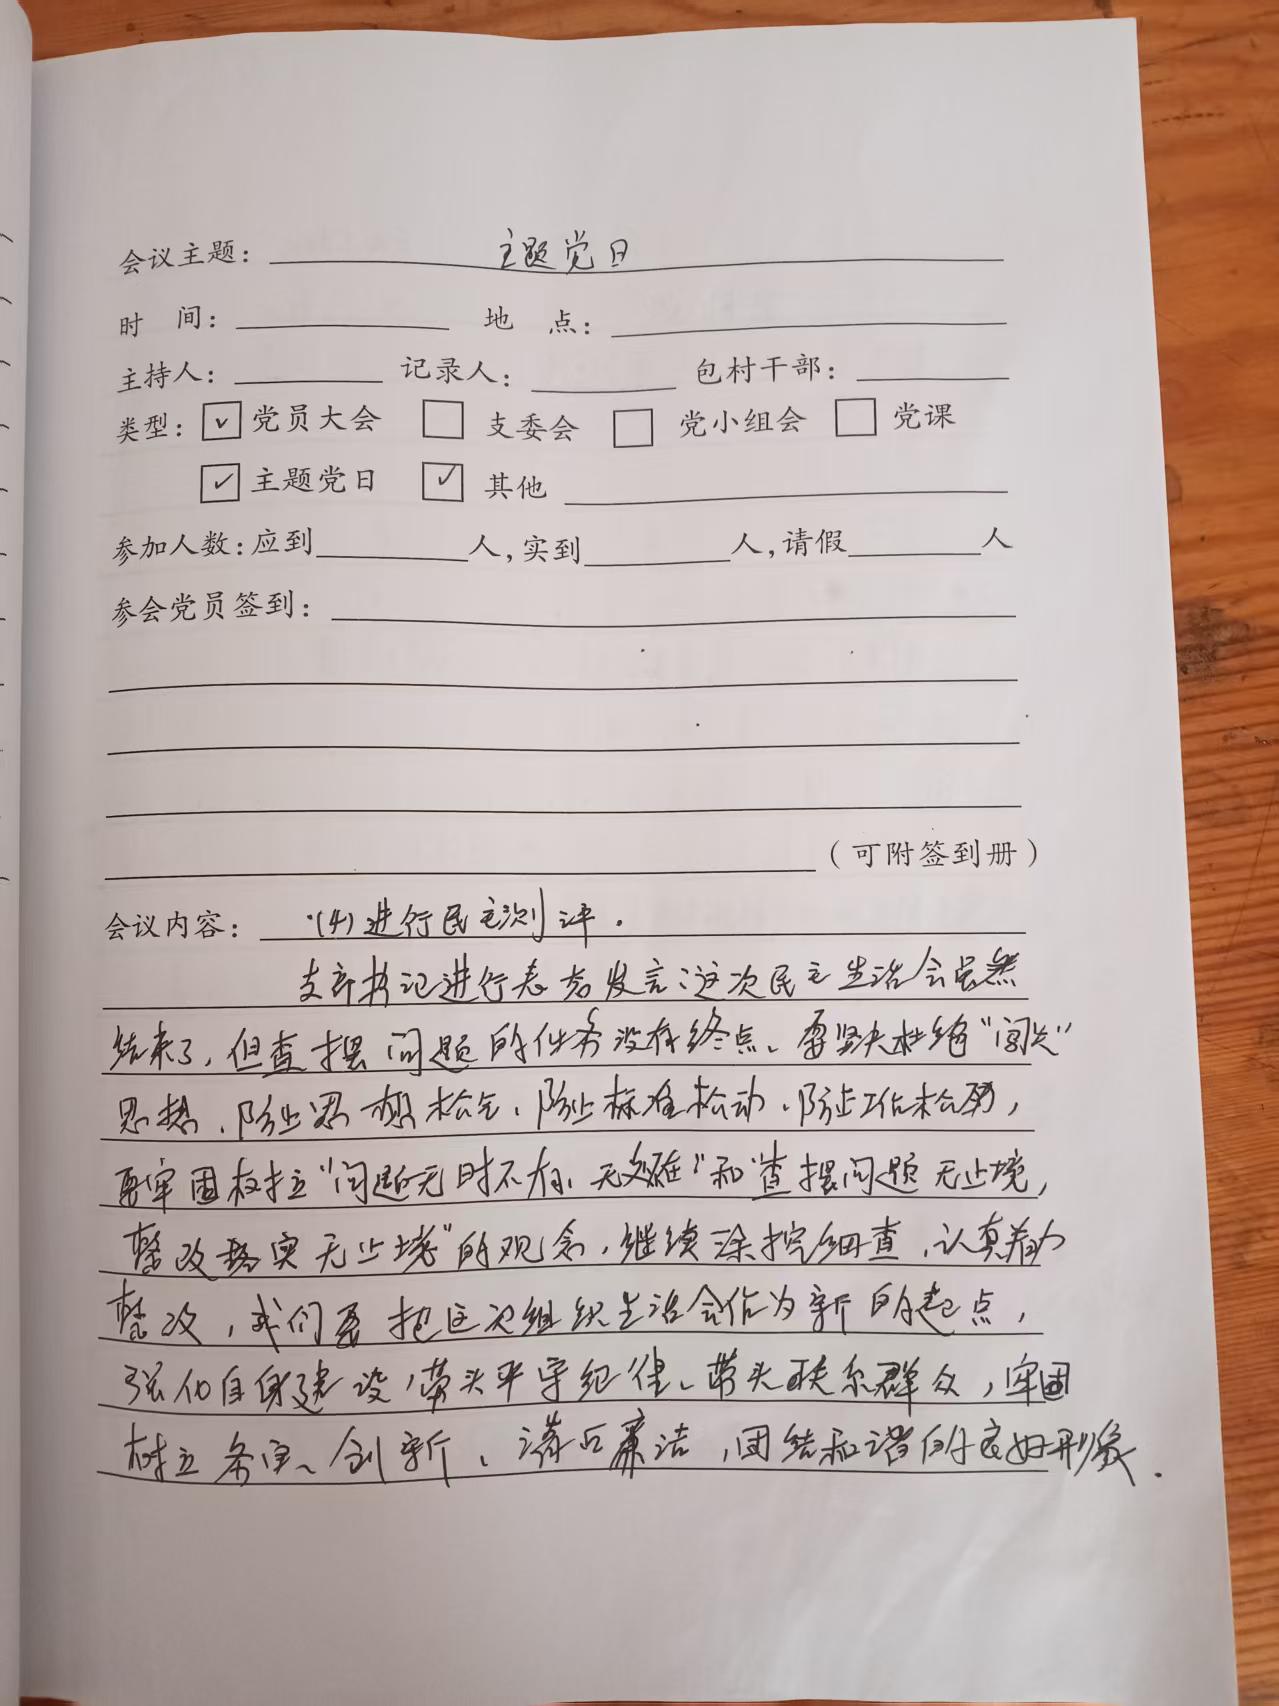 会议主题： 主题党日
时 间： 地 点：
主持人： 记录人： 包村干部：
类型： 党员大会 支委会 党小组会 党课
主题党日 其他
参加人数：应到 人，实到 人，请假 人
参会党员签到：
（可附签到册）
会议内容： (4)进行民主测评.
支部书记进行表态发言：这次民主生活会虽然
结束了，但查摆问题的任务没有终点、要坚决杜绝"闯关"
思想、防止思想松仓、防止标准松动、防止工作松劲，
要牢固树立"问题无时不有、无处不在"和"查摆问题无止境，
整改落实无止境"的观念，继续深挖细查、认真
整改，我们要把这次组织生活会作为新的起点，
强化自身建设，带头严守纪律、带头联系群众，牢固
树立务实、创新、清正廉洁，团结和谐的良好形象.